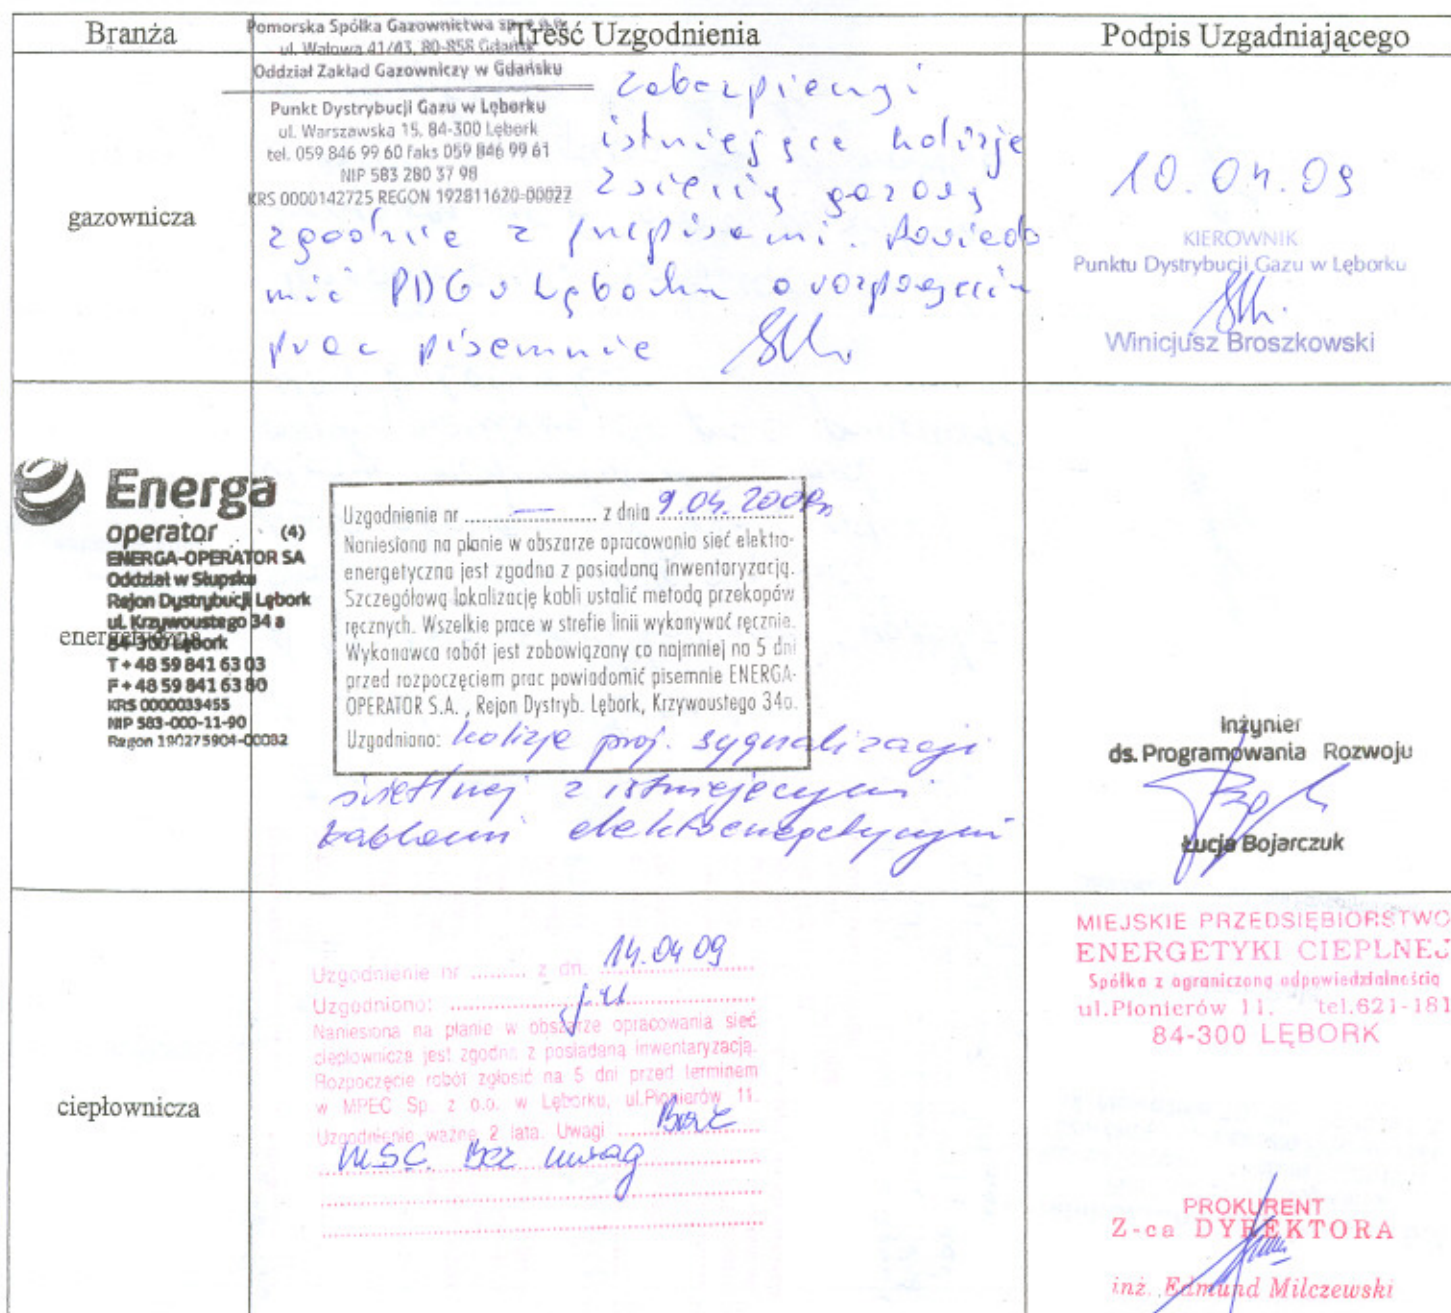 Branża
Treść Uzgodnienia
Podpis Uzgadniającego
Pomorska Spółka Gazownictwa sp. z o.o.
ul. Wałowa 41/43, 80-858 Gdańsk
Oddział Zakład Gazowniczy w Gdańsku
Punkt Dystrybucji Gazu w Lęborku
ul. Warszawska 15, 84-300 Lębork
tel. 059 846 99 60 faks 059 846 99 61
NIP 583 280 37 98
KRS 0000142725 REGON 192811620-00022
gazownicza
istniejące kolizje
z siecią gazową
zgodnie z przepisami. Powiado
mić PDG w Lęborku o rozpoczęciu
prac pisemnie
10.04.09
KIEROWNIK
Punktu Dystrybucji Gazu w Lęborku
Winicjusz Broszkowski
Energa
operator (4)
ENERGA-OPERATOR SA
Oddział w Słupsku
Rejon Dystrybucji Lębork
ul. Krzywoustego 34 a
84-300 Lębork
T + 48 59 841 63 03
F + 48 59 841 63 80
KRS 0000033455
NIP 583-000-11-90
Regon 190275904-00082
energetyczna
Uzgodnienie nr — z dnia 9.04.2009r
Naniesiona na planie w obszarze opracowania sieć elektro-
energetyczna jest zgodna z posiadaną inwentaryzacją.
Szczegółową lokalizację kabli ustalić metodą przekopów
ręcznych. Wszelkie prace w strefie linii wykonywać ręcznie.
Wykonawca robót jest zobowiązany co najmniej na 5 dni
przed rozpoczęciem prac powiadomić pisemnie ENERGA-
OPERATOR S.A. , Rejon Dystryb. Lębork, Krzywoustego 34a.
Uzgodniono: kolizje proj. sygnalizacji
świetlnej z istniejącymi
kablami elektroenergetycznymi
Inżynier
ds. Programowania Rozwoju
Łucja Bojarczuk
ciepłownicza
Uzgodnienie nr ......... z dn. 14.04 09
Uzgodniono:
Naniesiona na planie w obszarze opracowania sieć
ciepłownicza jest zgodna z posiadaną inwentaryzacją.
Rozpoczęcie robót zgłosić na 5 dni przed terminem
w MPEC Sp. z o.o. w Lęborku, ul.Pionierów 11.
Uzgodnienie ważne 2 lata. Uwagi Brak
MSC. Bez uwag
MIEJSKIE PRZEDSIĘBIORSTWO
ENERGETYKI CIEPLNEJ
Spółka z ograniczoną odpowiedzialnością
ul.Pionierów 11. tel.621-181
84-300 LĘBORK
PROKURENT
Z-ca DYREKTORA
inż. Edmund Milczewski